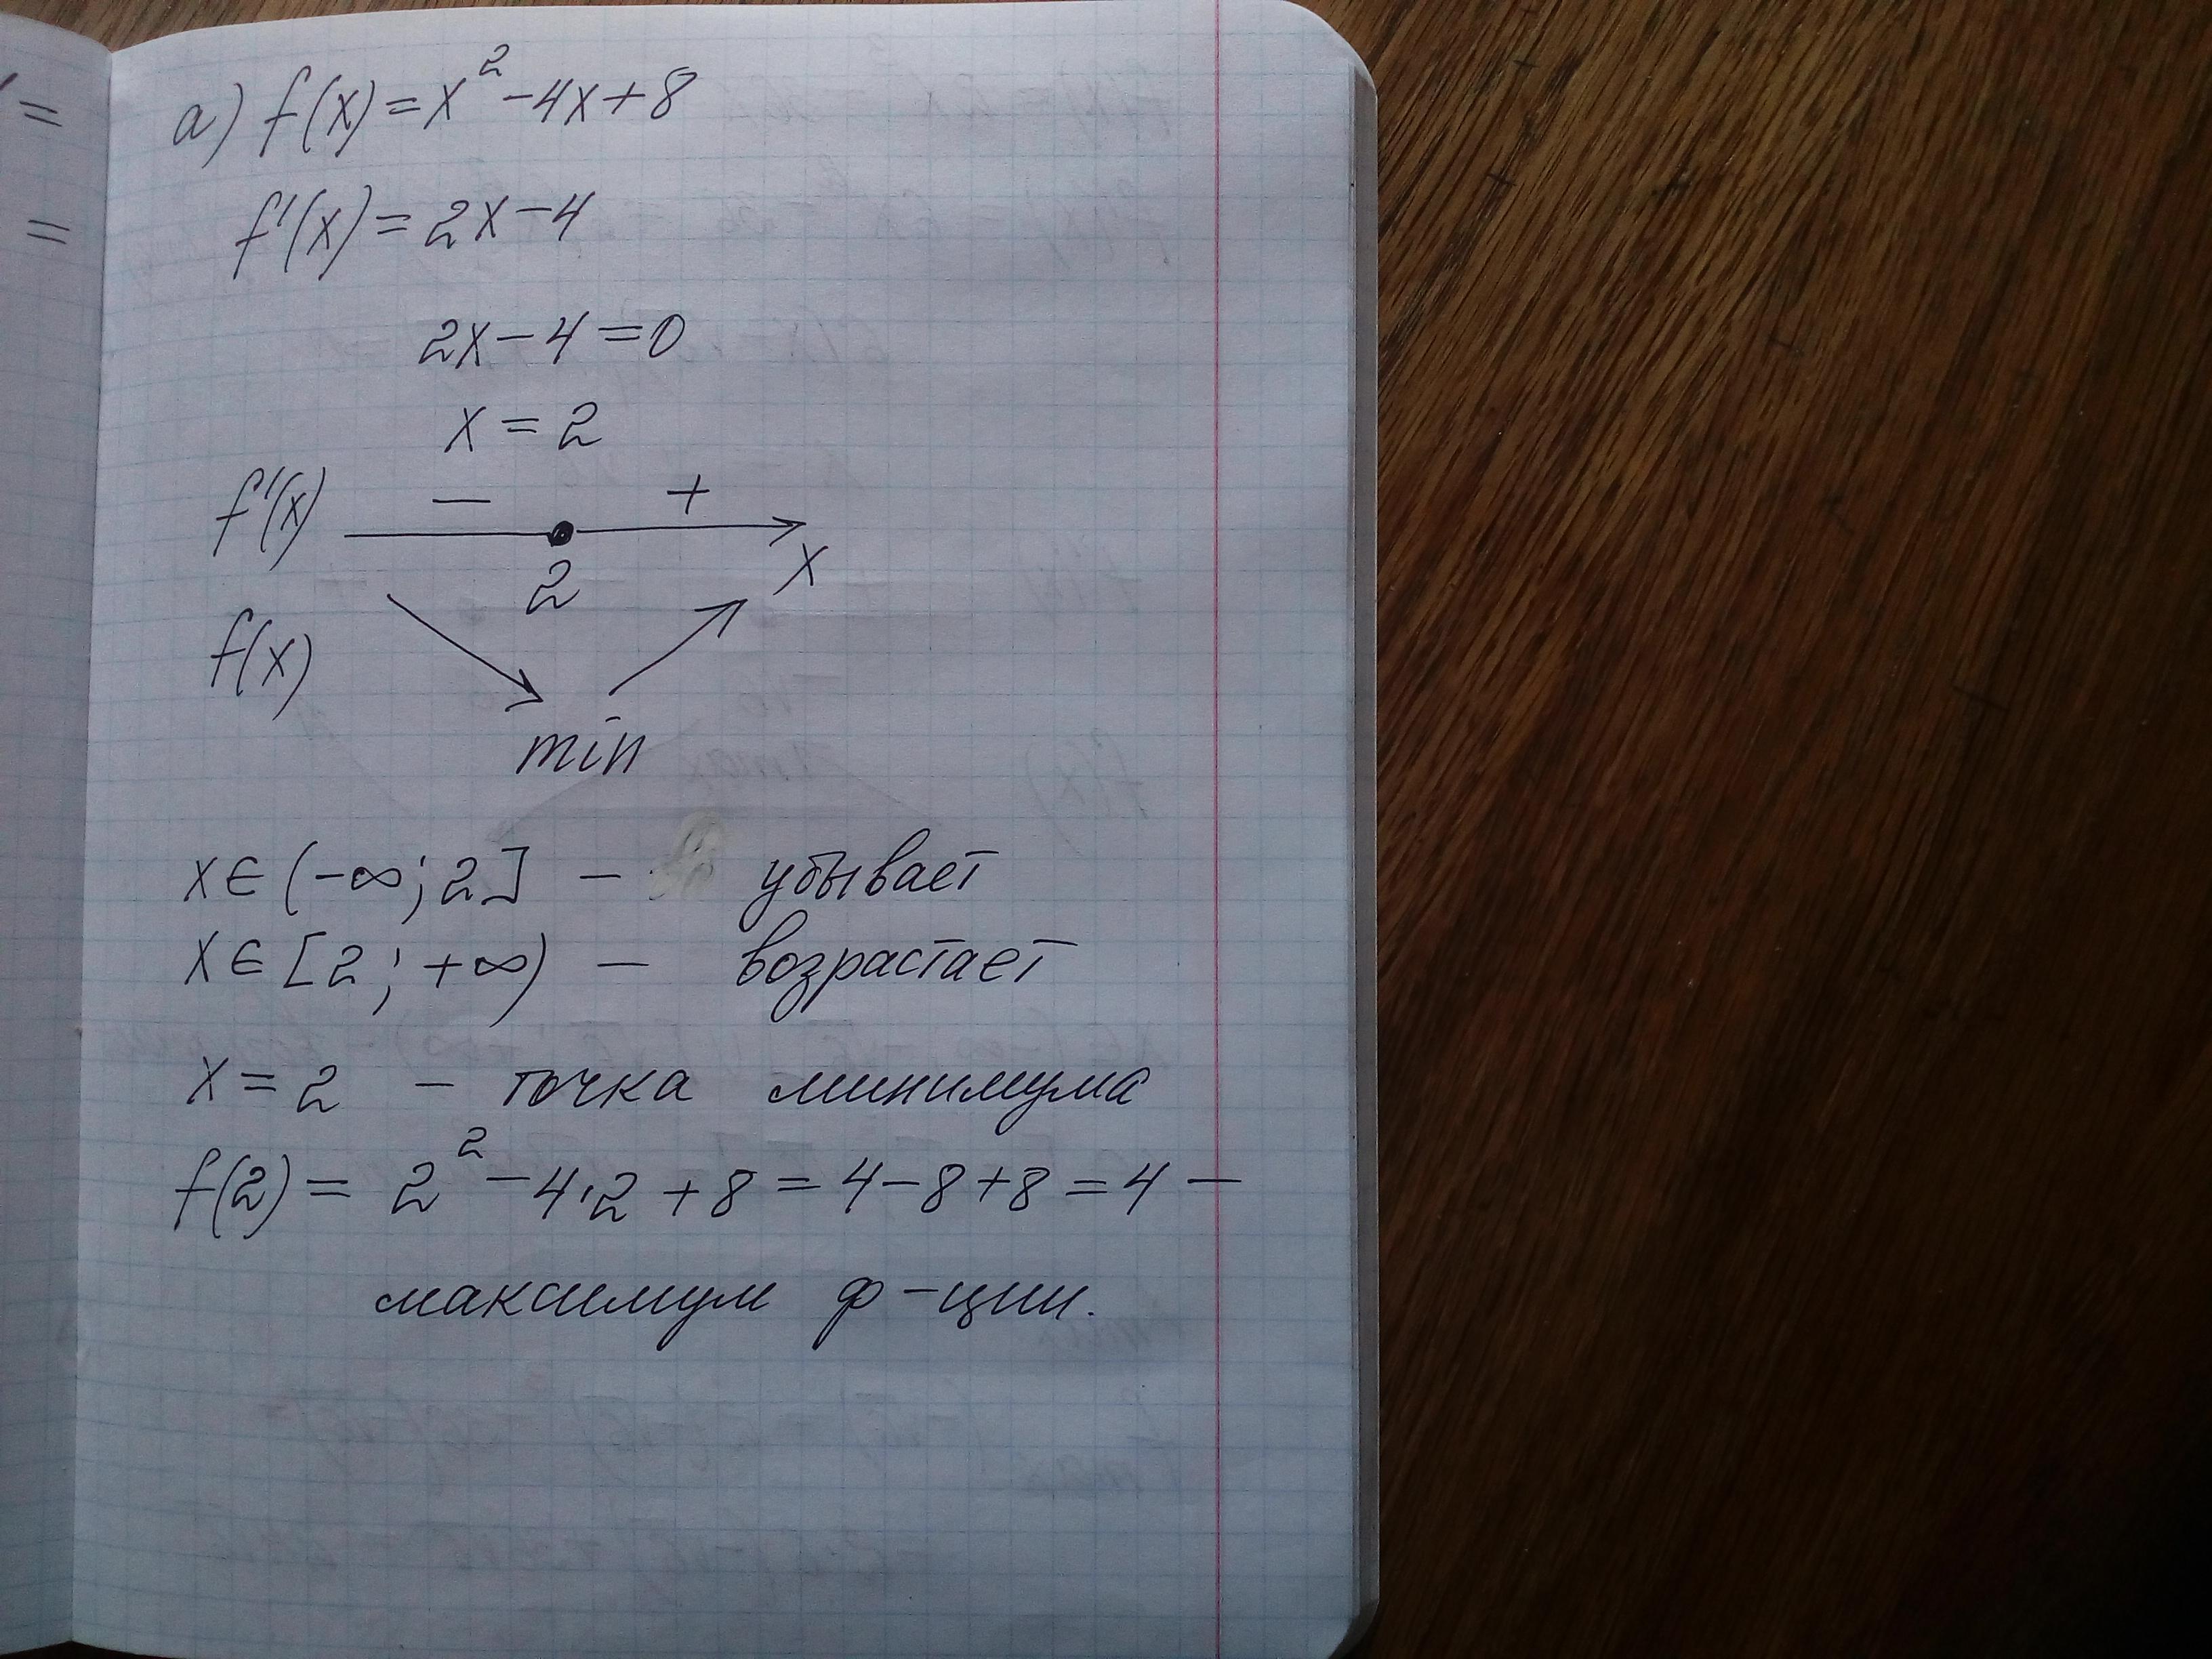 а) f(x)=x²-4x+8
f'(x)=2x-4
2x-4=0
x=2
f'(x) - +
2 x
f(x)
min
x∈(-∞;2] - убывает
x∈[2;+∞) - возрастает
x=2 - точка минимума
f(2)=2²-4·2+8=4-8+8=4-
максимум ф-ции.